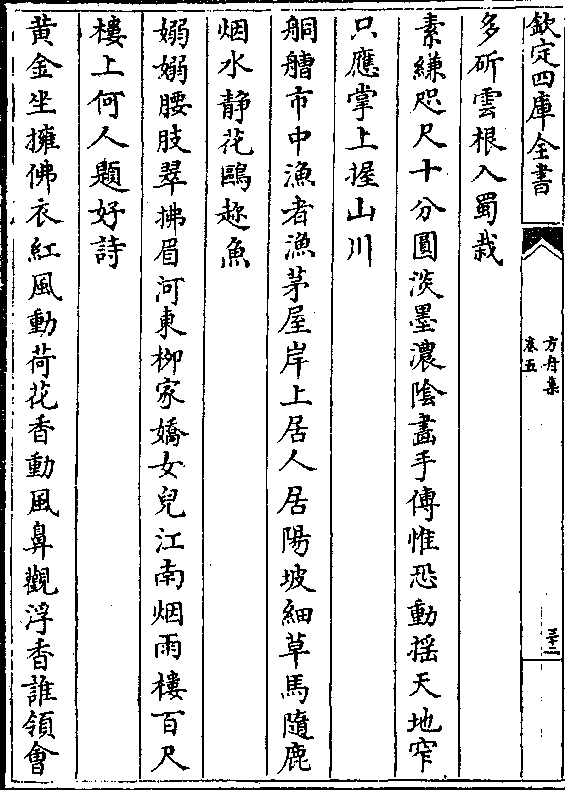 欽定四庫全書
方舟集
卷五
三十二
多斫雲根入蜀栽
素縑咫尺十分圓淡墨濃陰畫手傳惟恐動揺天地窄
只應掌上握山川
舸艚市中漁者漁茅屋岸上居人居陽坡細草馬隨鹿
烟水静花鷗趂魚
嫋嫋腰肢翠拂眉河東柳家嬌女兒江南烟雨樓百尺
樓上何人題好詩
黃金坐擁佛衣紅風動荷花香動風鼻觀浮香誰領㑹